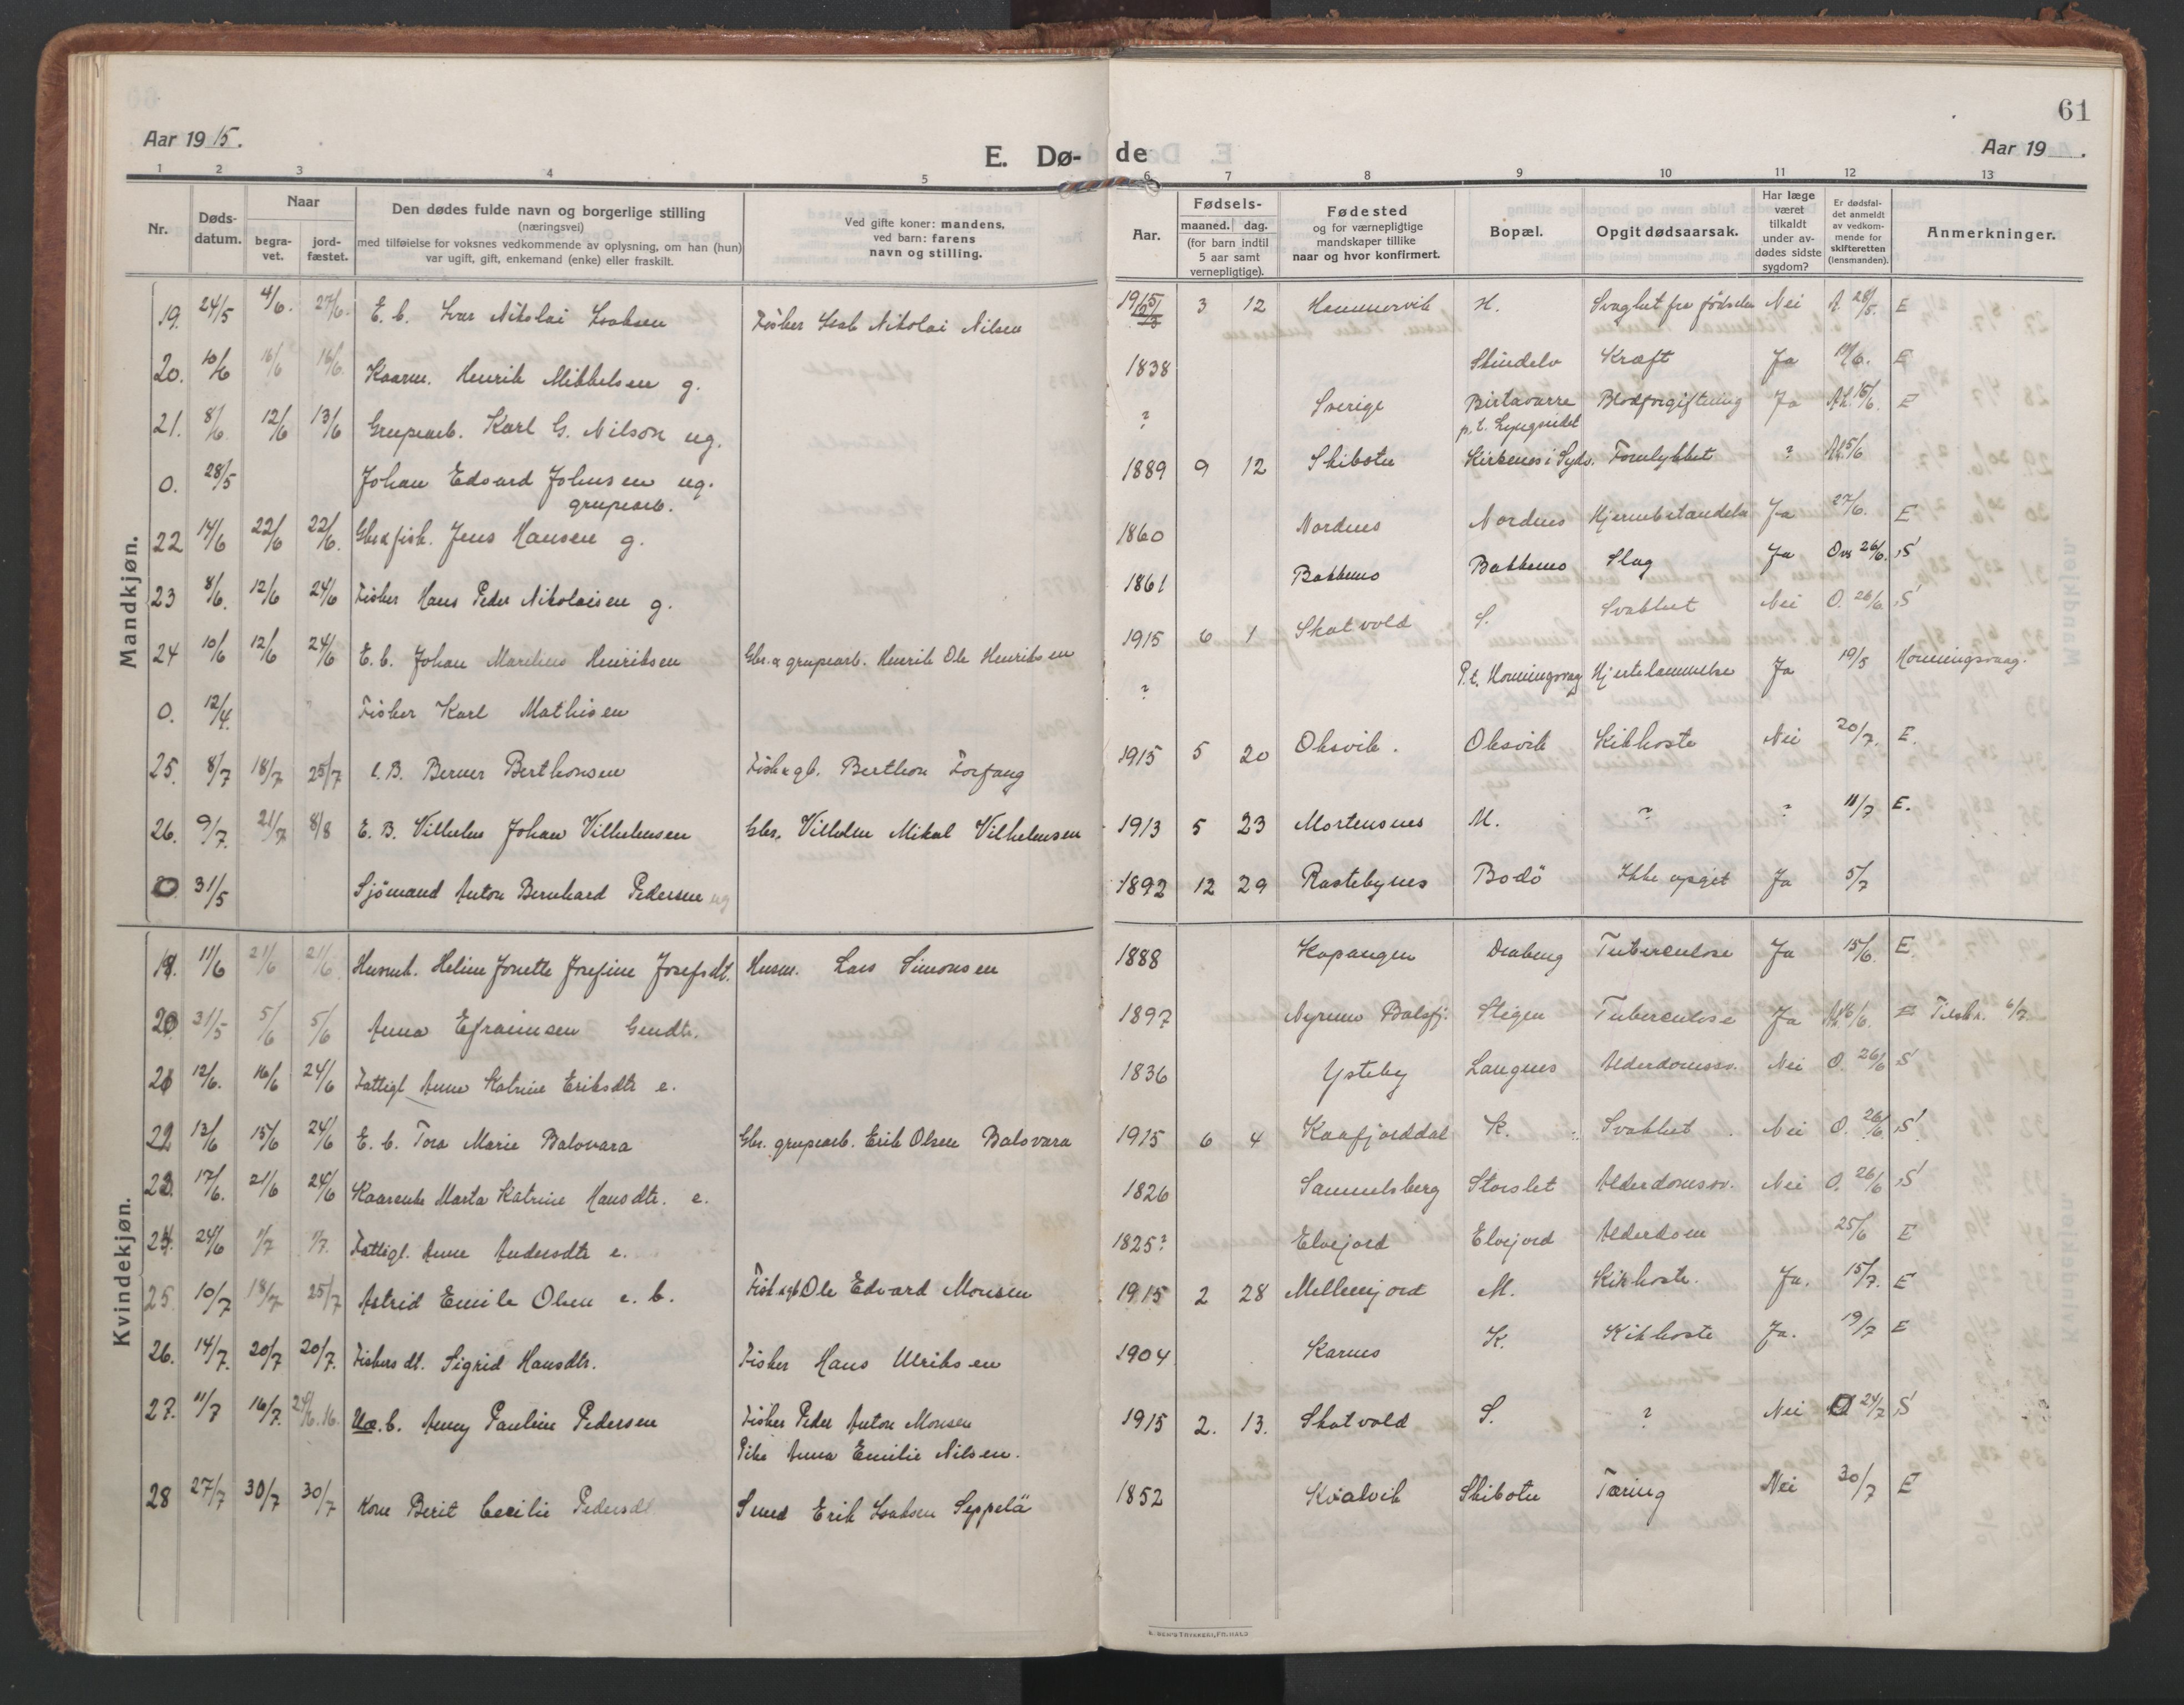 61
Aar 1915.
E. Dø-de
Aar 19 .
1 2 3 4 5 6 7 8 9 10 11 12 13
Nr.
Døds-datum.
Naar
begra-vet.
jord-fæstet.
Den dødes fulde navn og borgerlige stilling
(næringsvei)
med tilføielse for voksnes vedkommende av oplysning, om han (hun)
var ugift, gift, enkemand (enke) eller fraskilt.
Ved gifte koner: mandens,
ved barn: farens
navn og stilling.
Aar.
Fødsels-
maaned. dag.
(for barn indtil
5 aar samt
vernepligtige).
Fødested
og for værnepligtige
mandskaper tillike
naar og hvor konfirmert.
Bopæl.
Opgit dødsaarsak.
Har læge
været
tilkaldt
under av-
dødes sidste
sygdom?
Er dødsfal-
det anmeldt
av vedkom-
mende for
skifteretten
(lensmanden).
Anmerkninger.
Mandkjøn.
19. 24/5 4/6. 27/6. E. b. Ivar Nikolai Isaksen Fisker Isak Nikolai Nilsen 1915 3 12 Hammervik H. Svaghet fra födselen Nei 28/5. E
20. 10/6 16/6 16/6. Kaarm. Henrik Mikkelsen g. 1838 Skindelv Kræft Ja E
21. 8/6 12/6 13/6 Grupearb. Karl G. Nilson ug. ? Sverige Birtavarre Blodforgiftning Ja 15/6. E
p. t. Lyngseidet
0. 28/5 Johan Edvard Johnsen ug. 1889 9 12 Skiboten Kirkenes i Sydv. Forulykket ? 15/6
grupearb.
22 14/6 22/6 22/6. Gbr & fisk. Jens Hansen g. 1860 Nordnes Nordnes Hjernebetændelse Ja 27/6. E
23 8/6. 12/6 24/6 Fisker Hans Peder Nikolaisen g. 1861 Bakkemo Bakkemo Slag Ja 26/6. S
24 10/6 12/6 24/6 E. b. Johan Marelius Henriksen Gbr. & grupearb. Henrik Ole Henriksen 1915 6 1 Skatvold S. Svakhet Nei O. 26/6 S
0. 12/4. Fisker Karl Mathisen ? P.t. Honningsvag Hjertelammelse Ja 19/5 Honningsvaag.
25. 8/7 18/7 25/7 e. B. Berner Berthonsen Fisk & gb. Berthon Torfang 1915 5 20 Olsvik. Olsvik Kikhoste Nei 20/7. E.
26. 9/7. 21/7 8/8 E. B. Vilhelm Johan Vilhelmsen Gbr. Vilhelm Mikal Vilhelmsen 1913 5 23 Mortensnes M. ? ? 11/7 E.
0 31/5 Sjömand Anton Bernhard Pedersen ug 1892 12 29 Rastebynes Bodö Ikke opgit Ja 5/7
Kvindekjøn.
19. 11/6 21/6 21/6. Husmk. Heline Jonette Josefine Josefsdt. Husm. Lars Simonsen 1888 Kopangen Tuberculose Ja 15/6. E.
20 31/5 5/6 5/6 Anna Efraimsen Gmdtr. 1897 Nyrmo Balsfj. Steigen Tuberculose Ja E 6/7.
21 12/6. 16/6 24/6 Fattigl. Anne Katrine Eriksdtr e. 1836 Ysteby Langnes Alderdomssv. Nei O. 26/6 S
22 13/6 15/6 24/6 E. b. Tora Marie Balovara Gbr. grupearb. Erik Olsen Balsvara 1915 6 4 Kaafjorddal K. Svakhet Nei O. 26/6. S
23. 17/6. 21/6 24/6 Kaarenke Marta Katrine Hansdtr. e. 1826 Samuelsberg Storslet Alderdomssv. Nei O. 26/6 S
24. 24/6 1/7 1/7. Fattigl. Anne Andersdtr e. 1825? Elvejord Elvejord Alderdom 25/6 E
25. 10/7 18/7 25/7 Astrid Emile Olsen e. b. Fisk & gb Ole Edvard Monsen 1915 2 28 Mellemjord M. Kikhoste. Ja. 15/7. E
26. 14/7. 20/7 20/7. Fiskersdt. Sigrid Hansdtr. Fisker Hans Ulriksen 1904 Karnes K. Kikhoste Ja. 19/7 E
27. 11/7 16/7. Uæ. b. Anny Pauline Pedersen Fisker Peder Anton Monsen 1915 2. 13. Skatvold S. ? Nei O 24/7 S
Pike Anna Emilie Nilsen.
28 27/7 30/7 30/7 Kone Berit Cecilie Pedersdt Smed Erik Isaksen Seppelä 1852 Kvalvik Skiboten Tæring Nei 30/7 E